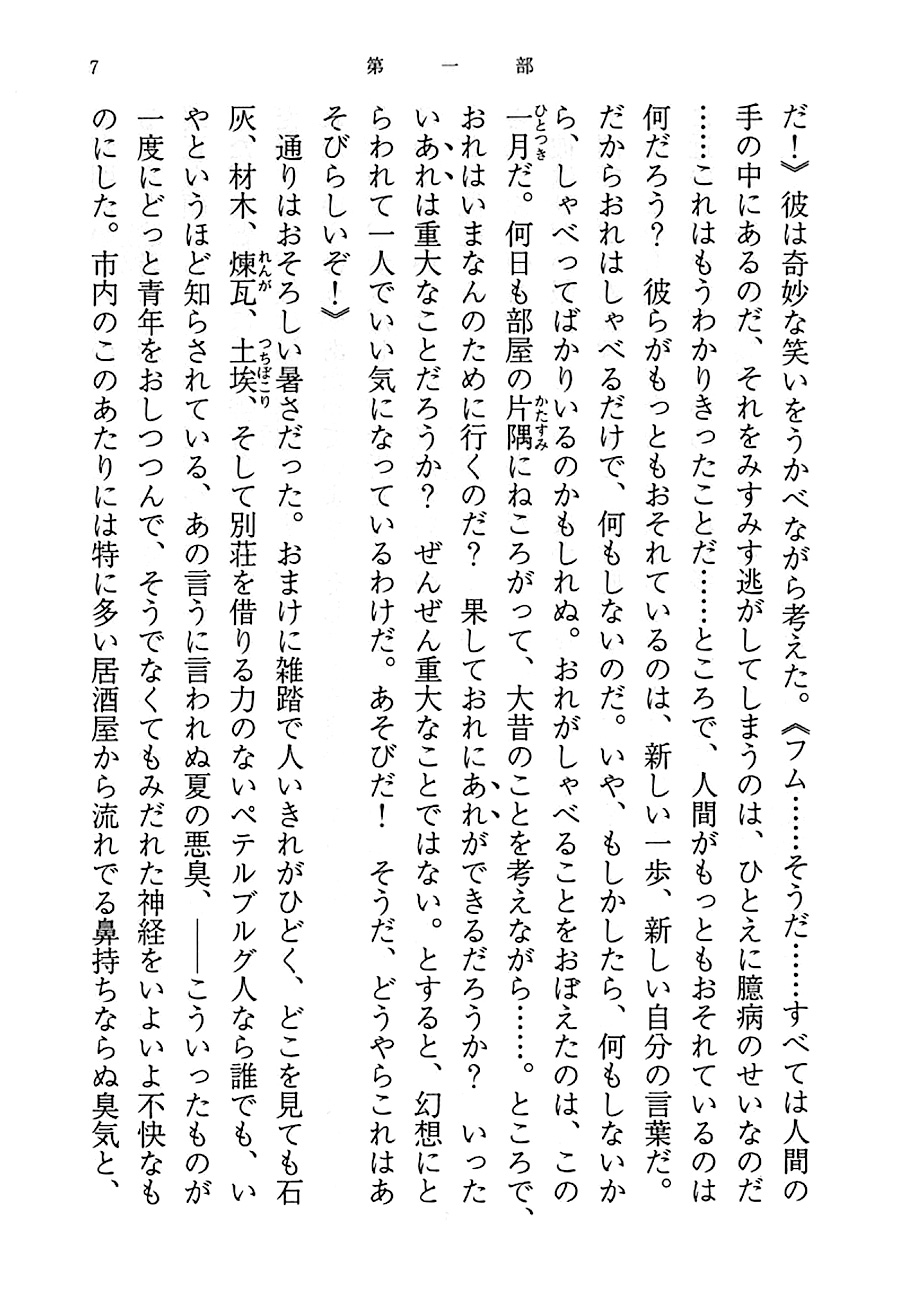 7
第一部
だ！》彼は奇妙な笑いをうかべながら考えた。《フム……そうだ……すべては人間の
手の中にあるのだ、それをみすみす逃がしてしまうのは、ひとえに臆病のせいなのだ
……これはもうわかりきったことだ……ところで、人間がもっともおそれているのは
何だろう？　彼らがもっともおそれているのは、新しい一歩、新しい自分の言葉だ。
だからおれはしゃべるだけで、何もしないのだ。いや、もしかしたら、何もしないか
ら、しゃべってばかりいるのかもしれぬ。おれがしゃべることをおぼえたのは、この
一月だ。何日も部屋の片隅にねころがって、大昔のことを考えながら……。ところで、
おれはいまなんのために行くのだ？　果しておれにあれができるだろうか？　いった
いあれは重大なことだろうか？　ぜんぜん重大なことではない。とすると、幻想にと
らわれて一人でいい気になっているわけだ。あそびだ！　そうだ、どうやらこれはあ
そびらしいぞ！》
　通りはおそろしい暑さだった。おまけに雑踏で人いきれがひどく、どこを見ても石
灰、材木、煉瓦、土埃、そして別荘を借りる力のないペテルブルグ人なら誰でも、い
やというほど知らされている、あの言うに言われぬ夏の悪臭、――こういったものが
一度にどっと青年をおしつつんで、そうでなくてもみだれた神経をいよいよ不快なも
のにした。市内のこのあたりには特に多い居酒屋から流れでる鼻持ちならぬ臭気と、